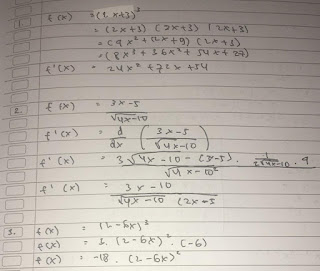 1. f(x) = (2x+3)³
= (2x+3) (2x+3) (2x+3)
= (4x²+12x+9) (2x+3)
= (8x³+36x²+54x+27)
f'(x) = 24x²+72x+54
2. f(x) = 3x-5/√4x-10
f'(x) = d/dx (3x-5/√4x-10)
f'(x) = 3√4x-10 - (3x-5). 1/2√4x-10 . 4 / √4x-10²
f'(x) = 3x-10/√4x-10 (2x-5
3. f(x) = (2-6x)³
f(x) = 3. (2-6x)². (-6)
f(x) = -18. (2-6x)²